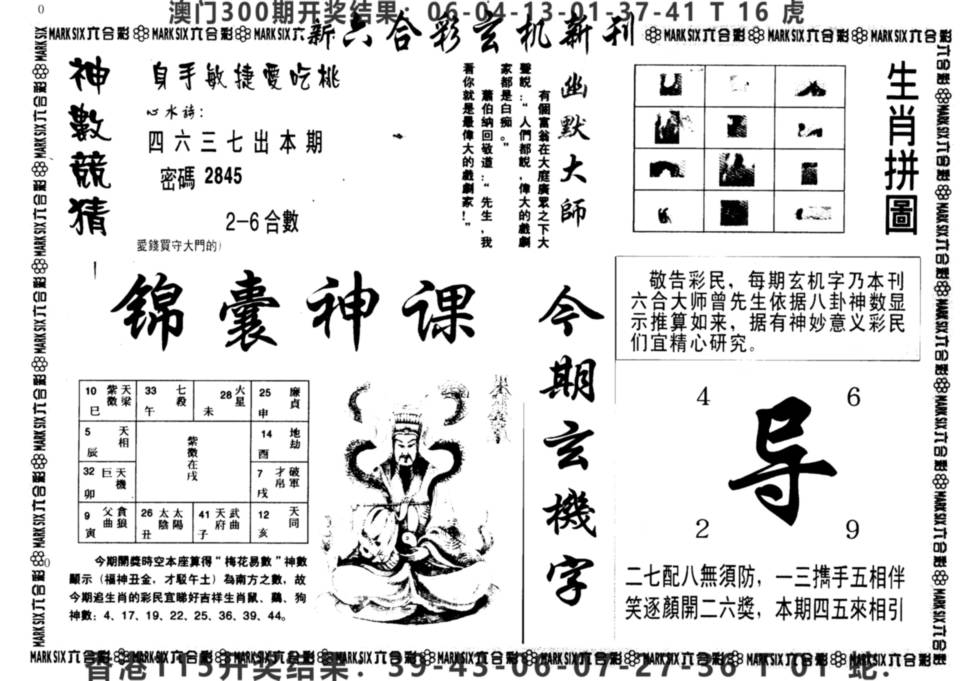 澳门300期开奖结果：06-04-13-01-37-41 T 16 虎
新六合彩玄机新刊
神數競猜
自手敏捷愛吃桃
心水詩：
四六三七出本期
密碼 2845
2-6合數
愛錢買守大門的
幽默大師
有個富翁在大庭廣眾之下大
聲說：“人們都說，偉大的戲劇
家都是白痴。”
蕭伯納回敬道：“先生，我
看你就是最偉大的戲劇家！”
生肖拼圖
锦囊神课
敬告彩民，每期玄机字乃本刊
六合大师曾先生依据八卦神数显
示推算如来，据有神妙意义彩民
们宜精心研究。
今期玄機字
4 6
导
2 9
二七配八無須防，一三携手五相伴
笑逐顏開二六獎，本期四五來相引
10 紫微 天梁 巳
33 七殺 午
28 火星 未
25 廉貞 申
5 天相 辰
紫微在戌
14 地劫 酉
32 巨 天機 卯
7 破軍 戌
9 父曲 貪狼 寅
26 太陰 太陽 丑
41 天府 武曲 子
12 天同 亥
今期開獎時空本座算得“梅花易數”神數
顯示（福神丑金，才駁午土）為南方之數，故
今期追生肖的彩民宜睇好吉祥生肖鼠、鷄、狗
神數：4、17、19、22、25、36、39、44。
香港115开奖结果：39-43-06-07-27-36 T 01 蛇：